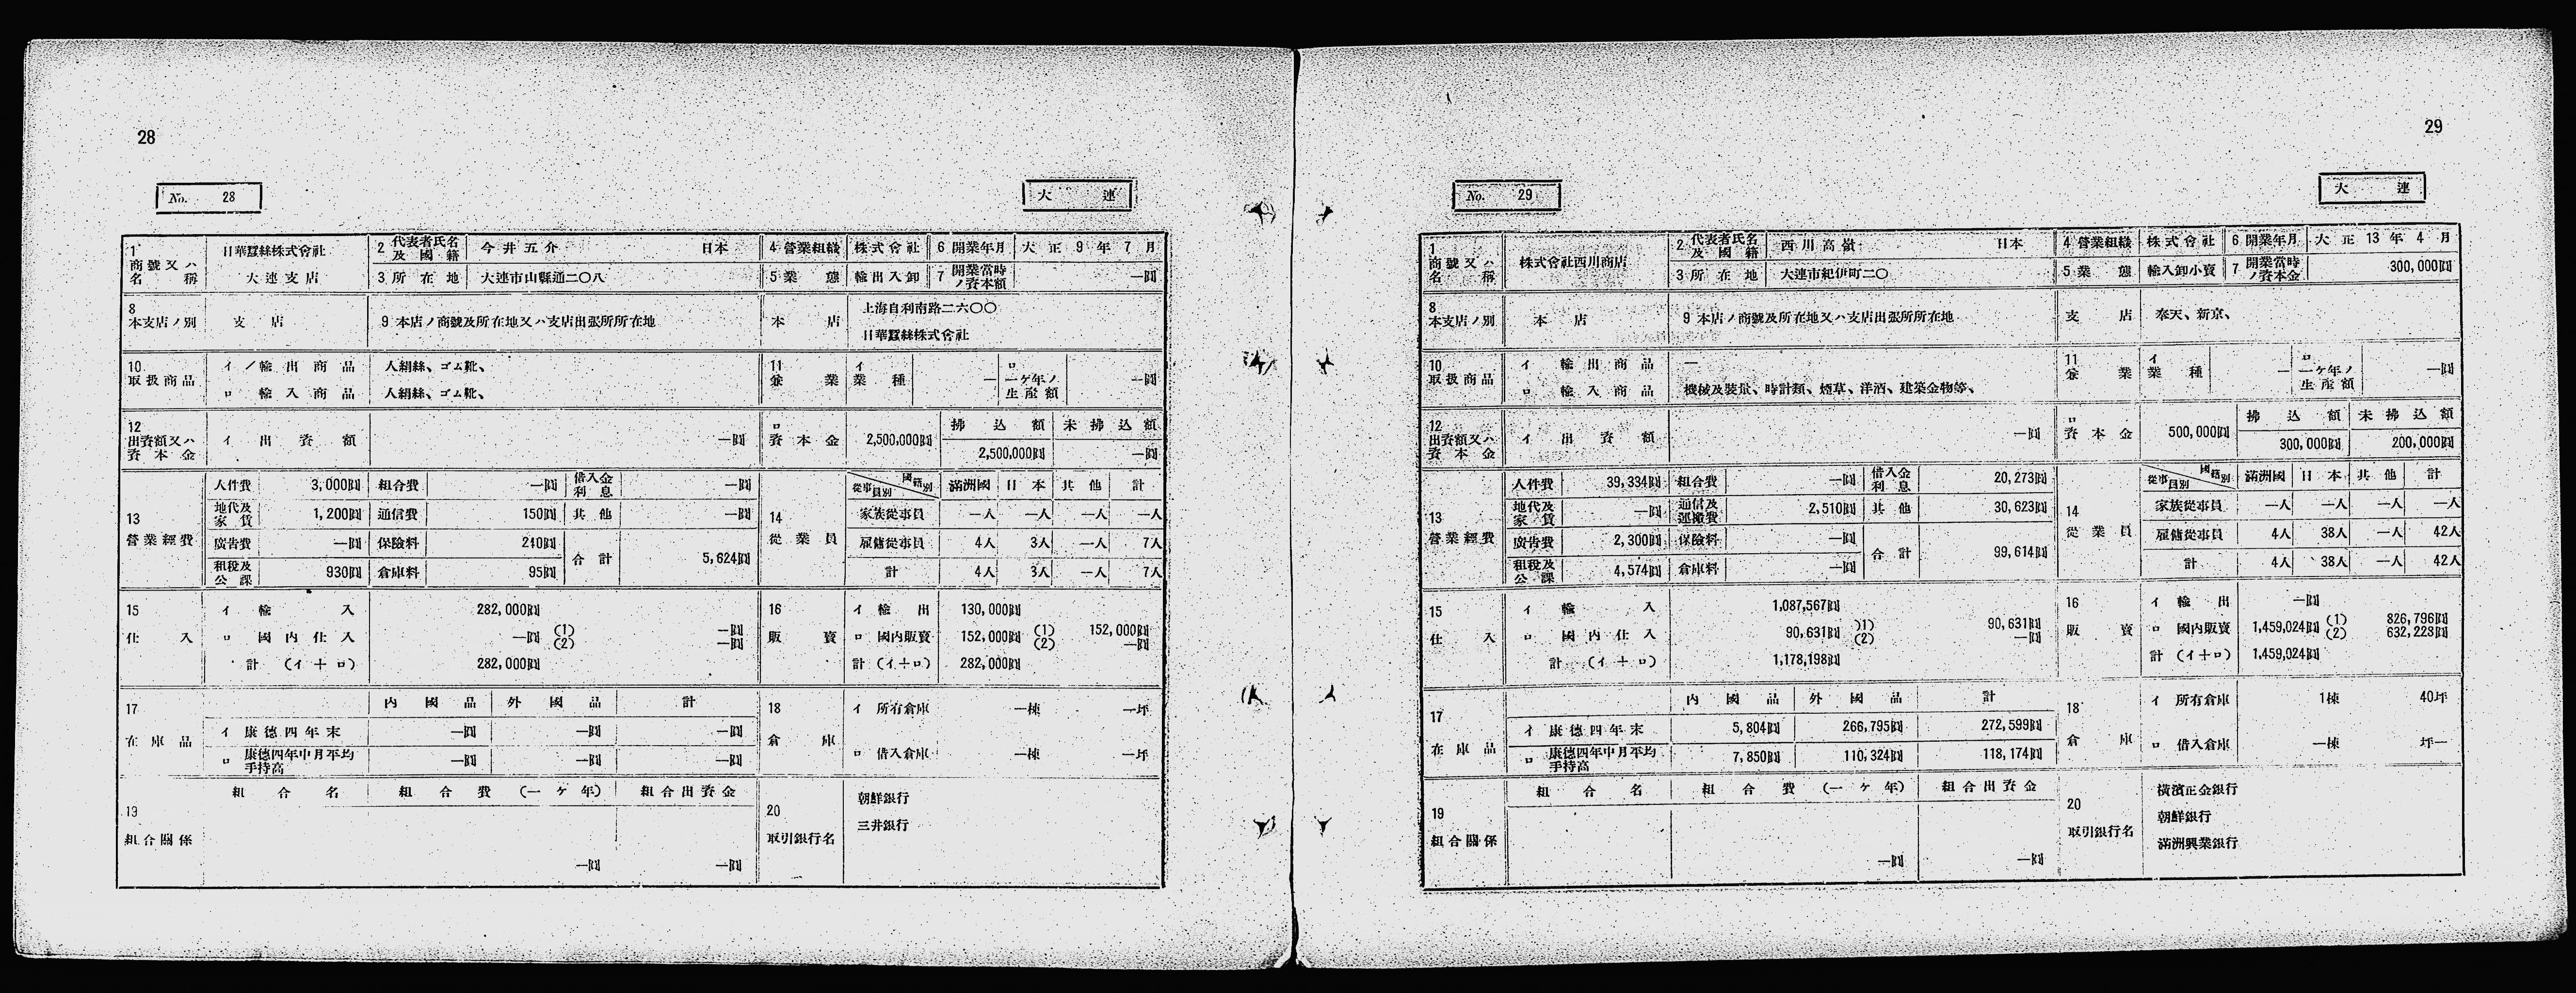 28
No. 28
大連
1 商號又ハ名稱 日華蠶絲株式會社 大連支店
2 代表者氏名及國籍 今井五介 日本
3 所在地 大連市山縣通二〇八
4 營業組織 株式會社
5 業態 輸出入卸
6 開業年月 大正9年7月
7 開業當時ノ資本額 —圓
8 本支店ノ別 支店
9 本店ノ商號及所在地又ハ支店出張所所在地 本店 上海自利南路二六〇〇
日華蠶絲株式會社
10 取扱商品 イ 輸出商品 人絹絲、ゴム靴、
ロ 輸入商品 人絹絲、ゴム靴、
11 兼業 イ 業種 — ロ 一ケ年ノ生産額 —圓
12 出資額又ハ資本金 イ 出資額 —圓
ロ 資本金 2,500,000圓 拂込額 2,500,000圓 未拂込額 —圓
13 營業經費
人件費 3,000圓 組合費 —圓 借入金利息 —圓
地代及家賃 1,200圓 通信費 150圓 其他 —圓
廣告費 —圓 保險料 240圓 合計 5,624圓
租稅及公課 930圓 倉庫料 95圓
14 從業員
從事員別 國籍別 滿洲國 日本 其他 計
家族從事員 —人 —人 —人 —人
雇傭從事員 4人 3人 —人 7人
計 4人 3人 —人 7人
15 仕入
イ 輸入 282,000圓
ロ 國內仕入 —圓 (1) —圓 (2) —圓
計 (イ+ロ) 282,000圓
16 販賣
イ 輸出 130,000圓
ロ 國內販賣 152,000圓 (1) 152,000圓 (2) —圓
計 (イ+ロ) 282,000圓
17 在庫品
內國品 外國品 計
イ 康德四年末 —圓 —圓 —圓
ロ 康德四年中月平均手持高 —圓 —圓 —圓
18 倉庫
イ 所有倉庫 —棟 —坪
ロ 借入倉庫 —棟 —坪
19 組合關係
組合名 組合費 (一ケ年) 組合出資金
—圓 —圓
20 取引銀行名
朝鮮銀行
三井銀行
29
No. 29
大連
1 商號又ハ名稱 株式會社西川商店
2 代表者氏名及國籍 西川高嶺 日本
3 所在地 大連市紀伊町二〇
4 營業組織 株式會社
5 業態 輸入卸小賣
6 開業年月 大正13年4月
7 開業當時ノ資本金 300,000圓
8 本支店ノ別 本店
9 本店ノ商號及所在地又ハ支店出張所所在地 支店 奉天、新京、
10 取扱商品 イ 輸出商品 —
ロ 輸入商品 機械及裝置、時計類、煙草、洋酒、建築金物等、
11 兼業 イ 業種 — ロ 一ケ年ノ生産額 —圓
12 出資額又ハ資本金 イ 出資額 —圓
ロ 資本金 500,000圓 拂込額 300,000圓 未拂込額 200,000圓
13 營業經費
人件費 39,334圓 組合費 —圓 借入金利息 20,273圓
地代及家賃 —圓 通信及運搬費 2,510圓 其他 30,623圓
廣告費 2,300圓 保險料 —圓 合計 99,614圓
租稅及公課 4,574圓 倉庫料 —圓
14 從業員
從事員別 國籍別 滿洲國 日本 其他 計
家族從事員 —人 —人 —人 —人
雇傭從事員 4人 38人 —人 42人
計 4人 38人 —人 42人
15 仕入
イ 輸入 1,087,567圓
ロ 國內仕入 90,631圓 (1) 90,631圓 (2) —圓
計 (イ+ロ) 1,178,198圓
16 販賣
イ 輸出 —圓
ロ 國內販賣 1,459,024圓 (1) 826,796圓 (2) 632,228圓
計 (イ+ロ) 1,459,024圓
17 在庫品
內國品 外國品 計
イ 康德四年末 5,804圓 266,795圓 272,599圓
ロ 康德四年中月平均手持高 7,850圓 110,324圓 118,174圓
18 倉庫
イ 所有倉庫 1棟 40坪
ロ 借入倉庫 —棟 坪—
19 組合關係
組合名 組合費 (一ケ年) 組合出資金
—圓 —圓
20 取引銀行名
橫濱正金銀行
朝鮮銀行
滿洲興業銀行